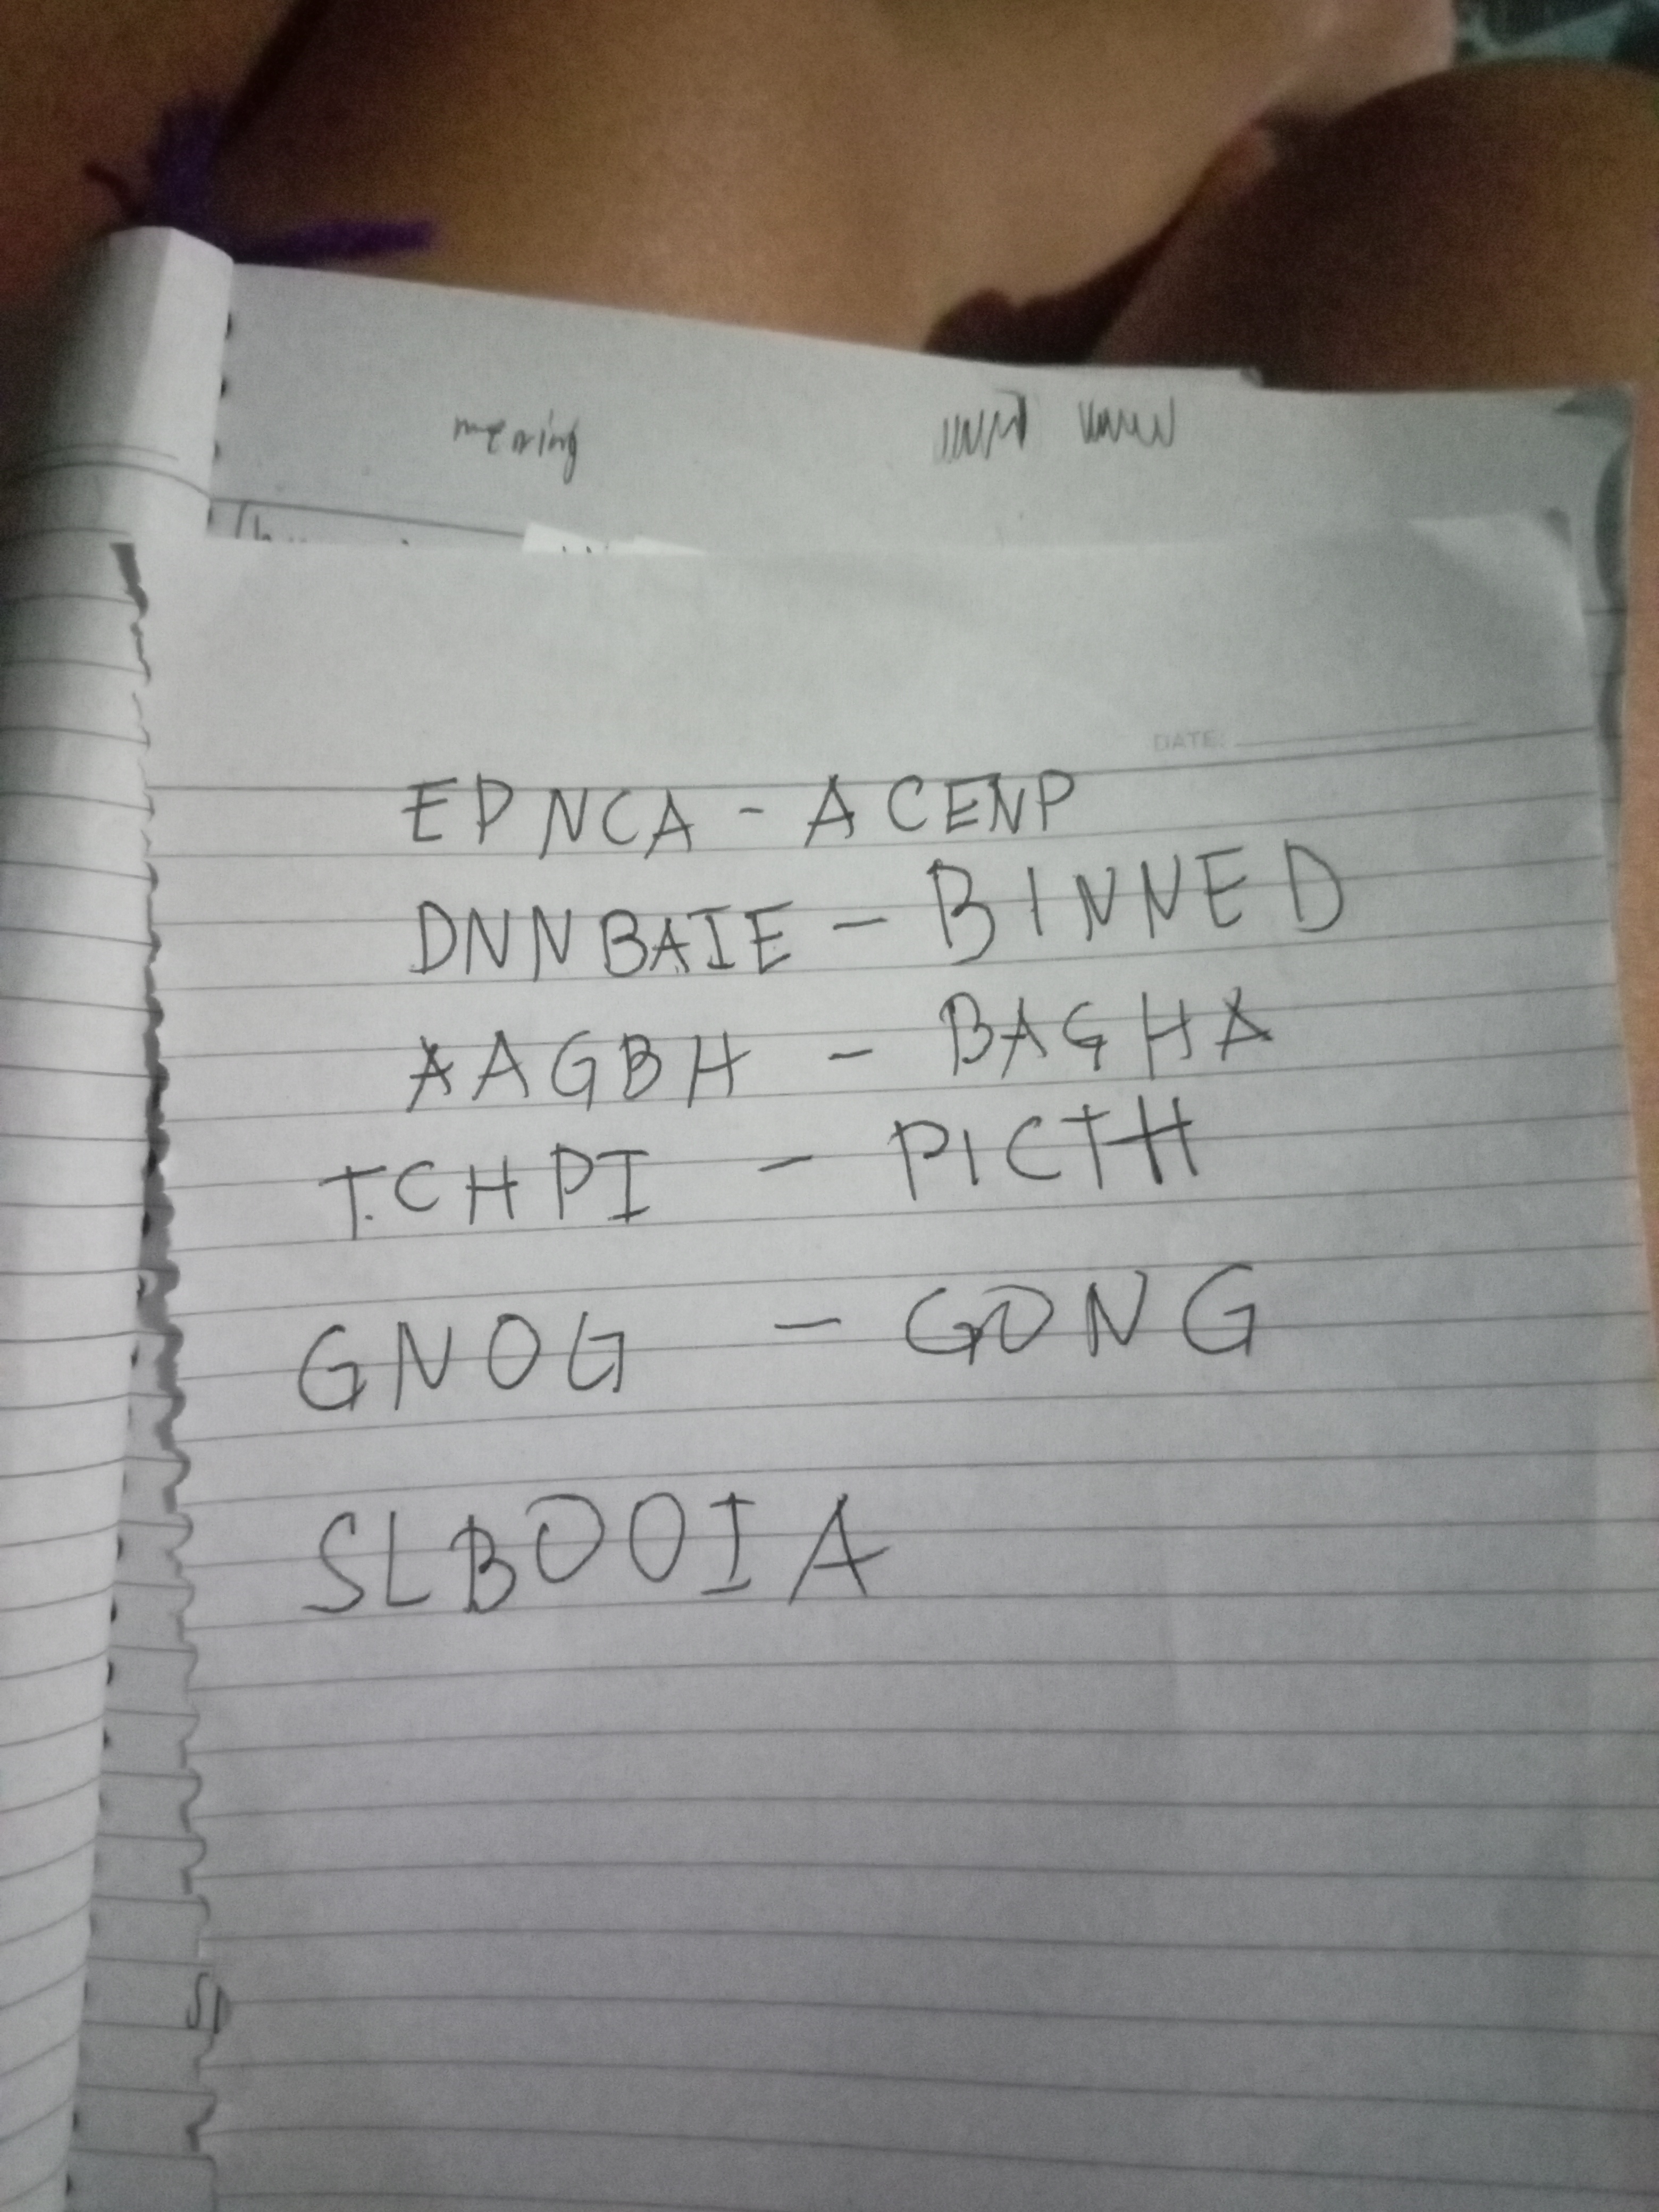 meaning
DATE:
EPNCA - ACENP
DNNBAIE - BINNED
AAGBH - BAGHA
T.CHPI - PICTH
GNOG - GONG
SLBOOIA